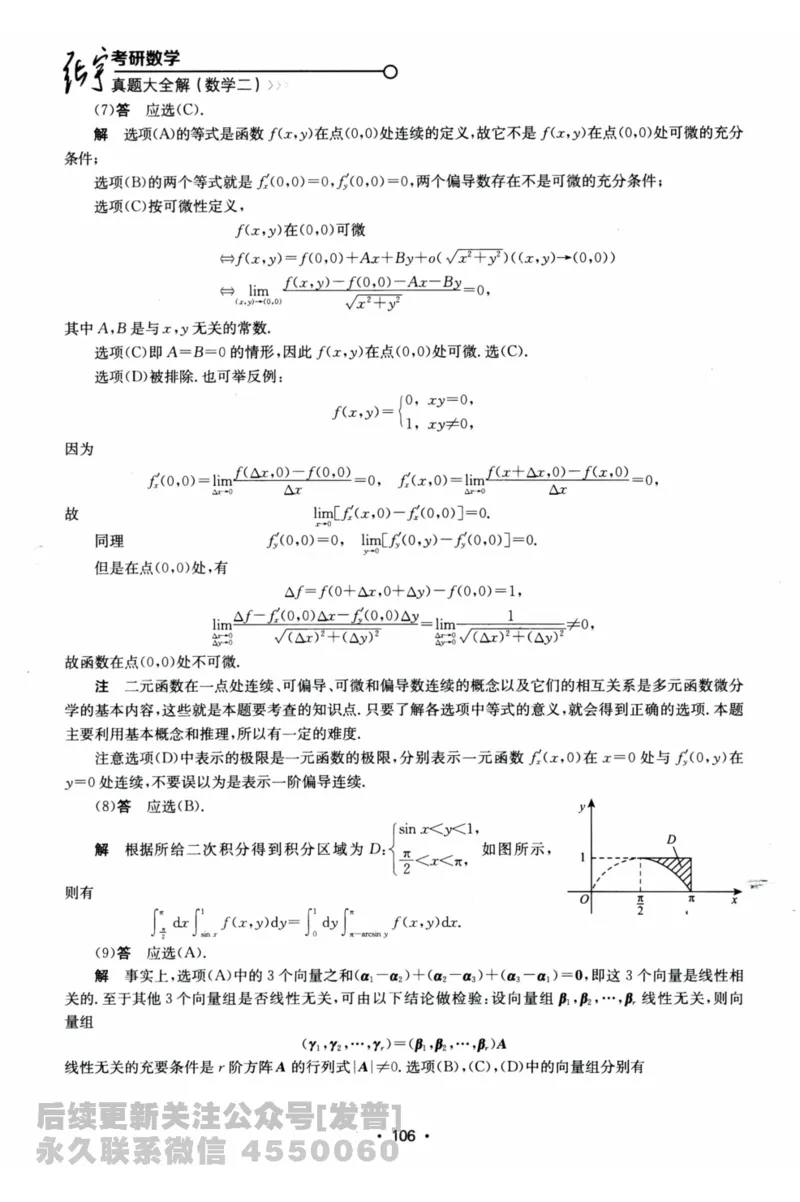 张宇考研数学
真题大全解(数学二)>>>
(7)答 应选(C).
解 选项(A)的等式是函数 f(x,y)在点(0,0)处连续的定义,故它不是 f(x,y)在点(0,0)处可微的充分
条件;
选项(B)的两个等式就是 f′ₓ(0,0)=0,f′ᵧ(0,0)=0,两个偏导数存在不是可微的充分条件;
选项(C)按可微性定义,
f(x,y)在(0,0)可微
⇔f(x,y)=f(0,0)+Ax+By+o(√(x²+y²))((x,y)→(0,0))
⇔ lim_{(x,y)→(0,0)} [f(x,y)−f(0,0)−Ax−By]/√(x²+y²)=0,
其中 A,B 是与 x,y 无关的常数.
选项(C)即 A=B=0 的情形,因此 f(x,y)在点(0,0)处可微.选(C).
选项(D)被排除.也可举反例:
f(x,y)={0, xy=0,
1, xy≠0,
因为
f′ₓ(0,0)=lim_{Δx→0} [f(Δx,0)−f(0,0)]/Δx=0, f′ₓ(x,0)=lim_{Δx→0} [f(x+Δx,0)−f(x,0)]/Δx=0,
故 lim_{x→0}[f′ₓ(x,0)−f′ₓ(0,0)]=0.
同理 f′ᵧ(0,0)=0, lim_{y→0}[f′ᵧ(0,y)−f′ᵧ(0,0)]=0.
但是在点(0,0)处,有
Δf=f(0+Δx,0+Δy)−f(0,0)=1,
lim_{Δx→0,Δy→0} [Δf−f′ₓ(0,0)Δx−f′ᵧ(0,0)Δy]/√((Δx)²+(Δy)²)=lim_{Δx→0,Δy→0} 1/√((Δx)²+(Δy)²)≠0,
故函数在点(0,0)处不可微.
注 二元函数在一点处连续、可偏导、可微和偏导数连续的概念以及它们的相互关系是多元函数微分
学的基本内容,这些就是本题要考查的知识点.只要了解各选项中等式的意义,就会得到正确的选项.本题
主要利用基本概念和推理,所以有一定的难度.
注意选项(D)中表示的极限是一元函数的极限,分别表示一元函数 f′ₓ(x,0)在 x=0 处与 f′ᵧ(0,y)在
y=0 处连续,不要误以为是表示一阶偏导连续.
(8)答 应选(B).
解 根据所给二次积分得到积分区域为 D:{sin x<y<1,
π/2<x<π, 如图所示,
y
D
1
O π/2 π x
则有
∫_{π/2}^{π} dx∫_{sin x}^{1} f(x,y)dy=∫_{0}^{1} dy∫_{π−arcsin y}^{π} f(x,y)dx.
(9)答 应选(A).
解 事实上,选项(A)中的 3 个向量之和(α₁−α₂)+(α₂−α₃)+(α₃−α₁)=0,即这 3 个向量是线性相
关的.至于其他 3 个向量组是否线性无关,可由以下结论做检验:设向量组 β₁,β₂,⋯,βᵣ 线性无关,则向
量组
(γ₁,γ₂,⋯,γᵣ)=(β₁,β₂,⋯,βᵣ)A
线性无关的充要条件是 r 阶方阵 A 的行列式|A|≠0.选项(B),(C),(D)中的向量组分别有
后续更新关注公众号[发普]
永久联系微信 4550060
• 106 •